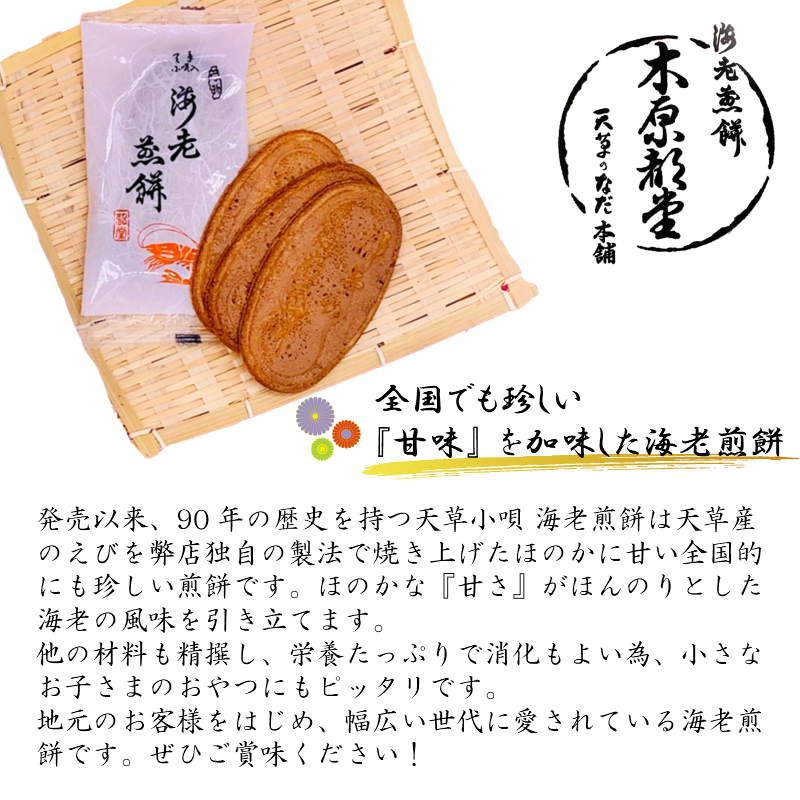 海老煎餅
木原都堂
天草のなだ本舗
海老
煎餅
全国でも珍しい
『甘味』を加味した海老煎餅
発売以来、90年の歴史を持つ天草小唄 海老煎餅は天草産
のえびを弊店独自の製法で焼き上げたほのかに甘い全国的
にも珍しい煎餅です。ほのかな『甘さ』がほんのりとした
海老の風味を引き立てます。
他の材料も精撰し、栄養たっぷりで消化もよい為、小さな
お子さまのおやつにもピッタリです。
地元のお客様をはじめ、幅広い世代に愛されている海老煎
餅です。ぜひご賞味ください！